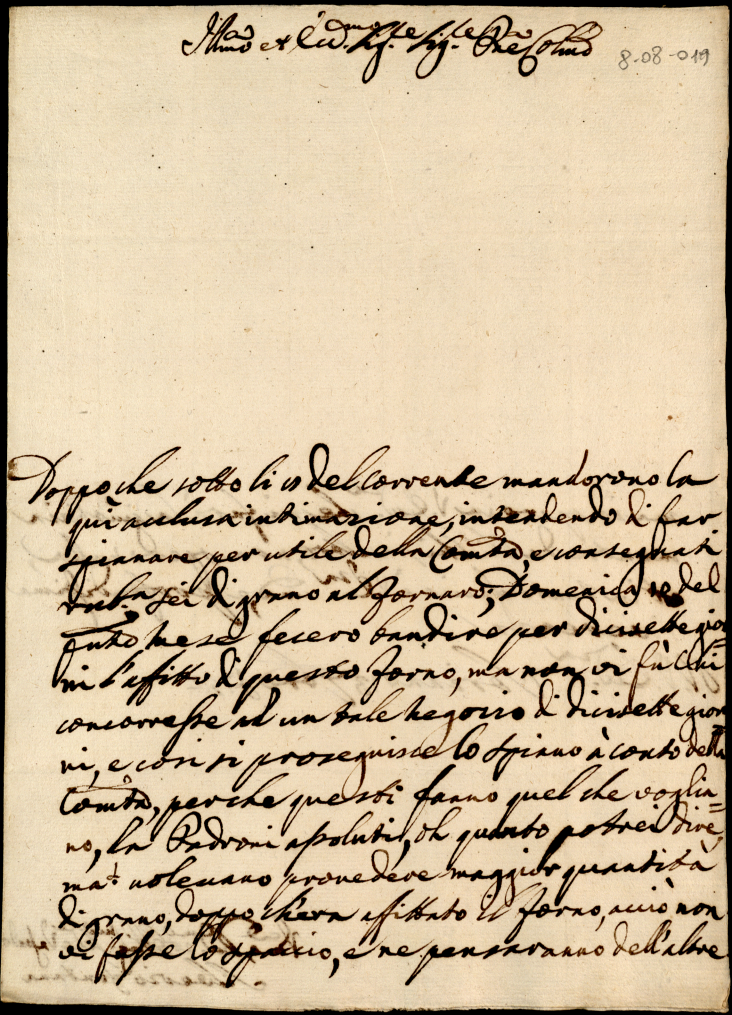 Ill.mo et Ecc.mo Sig.re Sig.re P.ne Col.mo
8-08-019
Doppo che sotto li 10 del Corrente mandorono la
qui acclusa intimazione, intendendo di far
spianare per utile della Com.tà, e consegnati
rub.a sei di grano al Fornaro; Domenica del
sud.to mese fecero bandire per dicisette gior=
ni l'affitto di questo Forno, ma non vi fù Chi
concorresse ad un tale negozio di dicisette gior
ni, e così si proseguisce lo spiano à conto della
Com.tà, perche questi fanno quel che voglia=
no, da Padroni assoluti, oh quanto potrei dire,
ma volevano provedere maggior quantità
di grano, doppo ch'era affittato il Forno, acciò non
vi fosse lo spaccio, e ne pensaranno dell'altre